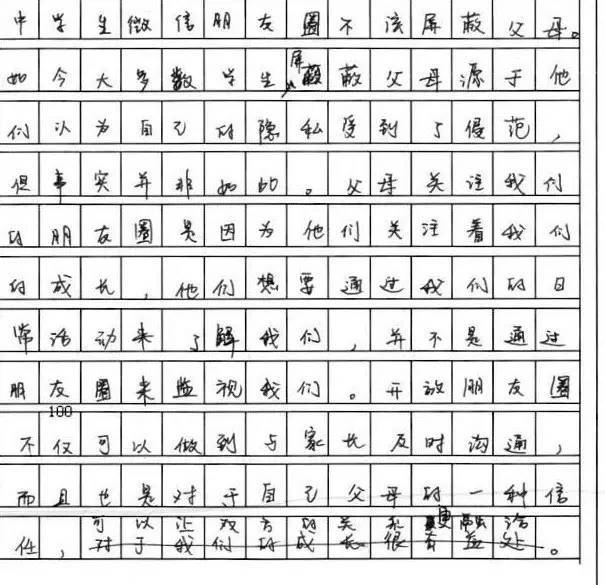 中学生微信朋友圈不该屏蔽父母。
如今大多数学生屏蔽父母源于他
们以为自己的隐私受到了侵范，
但事实并非如此。父母关注我们
的朋友圈是因为他们关注着我们
的成长，他们想要通过我们的日
常活动来了解我们，并不是通过
朋友圈来监视我们。开放朋友圈
100
不仅可以做到与家长及时沟通，
而且也是对于自己父母的一种信
可以让双方的关系更融洽
任，对于我们的成长很有益处。